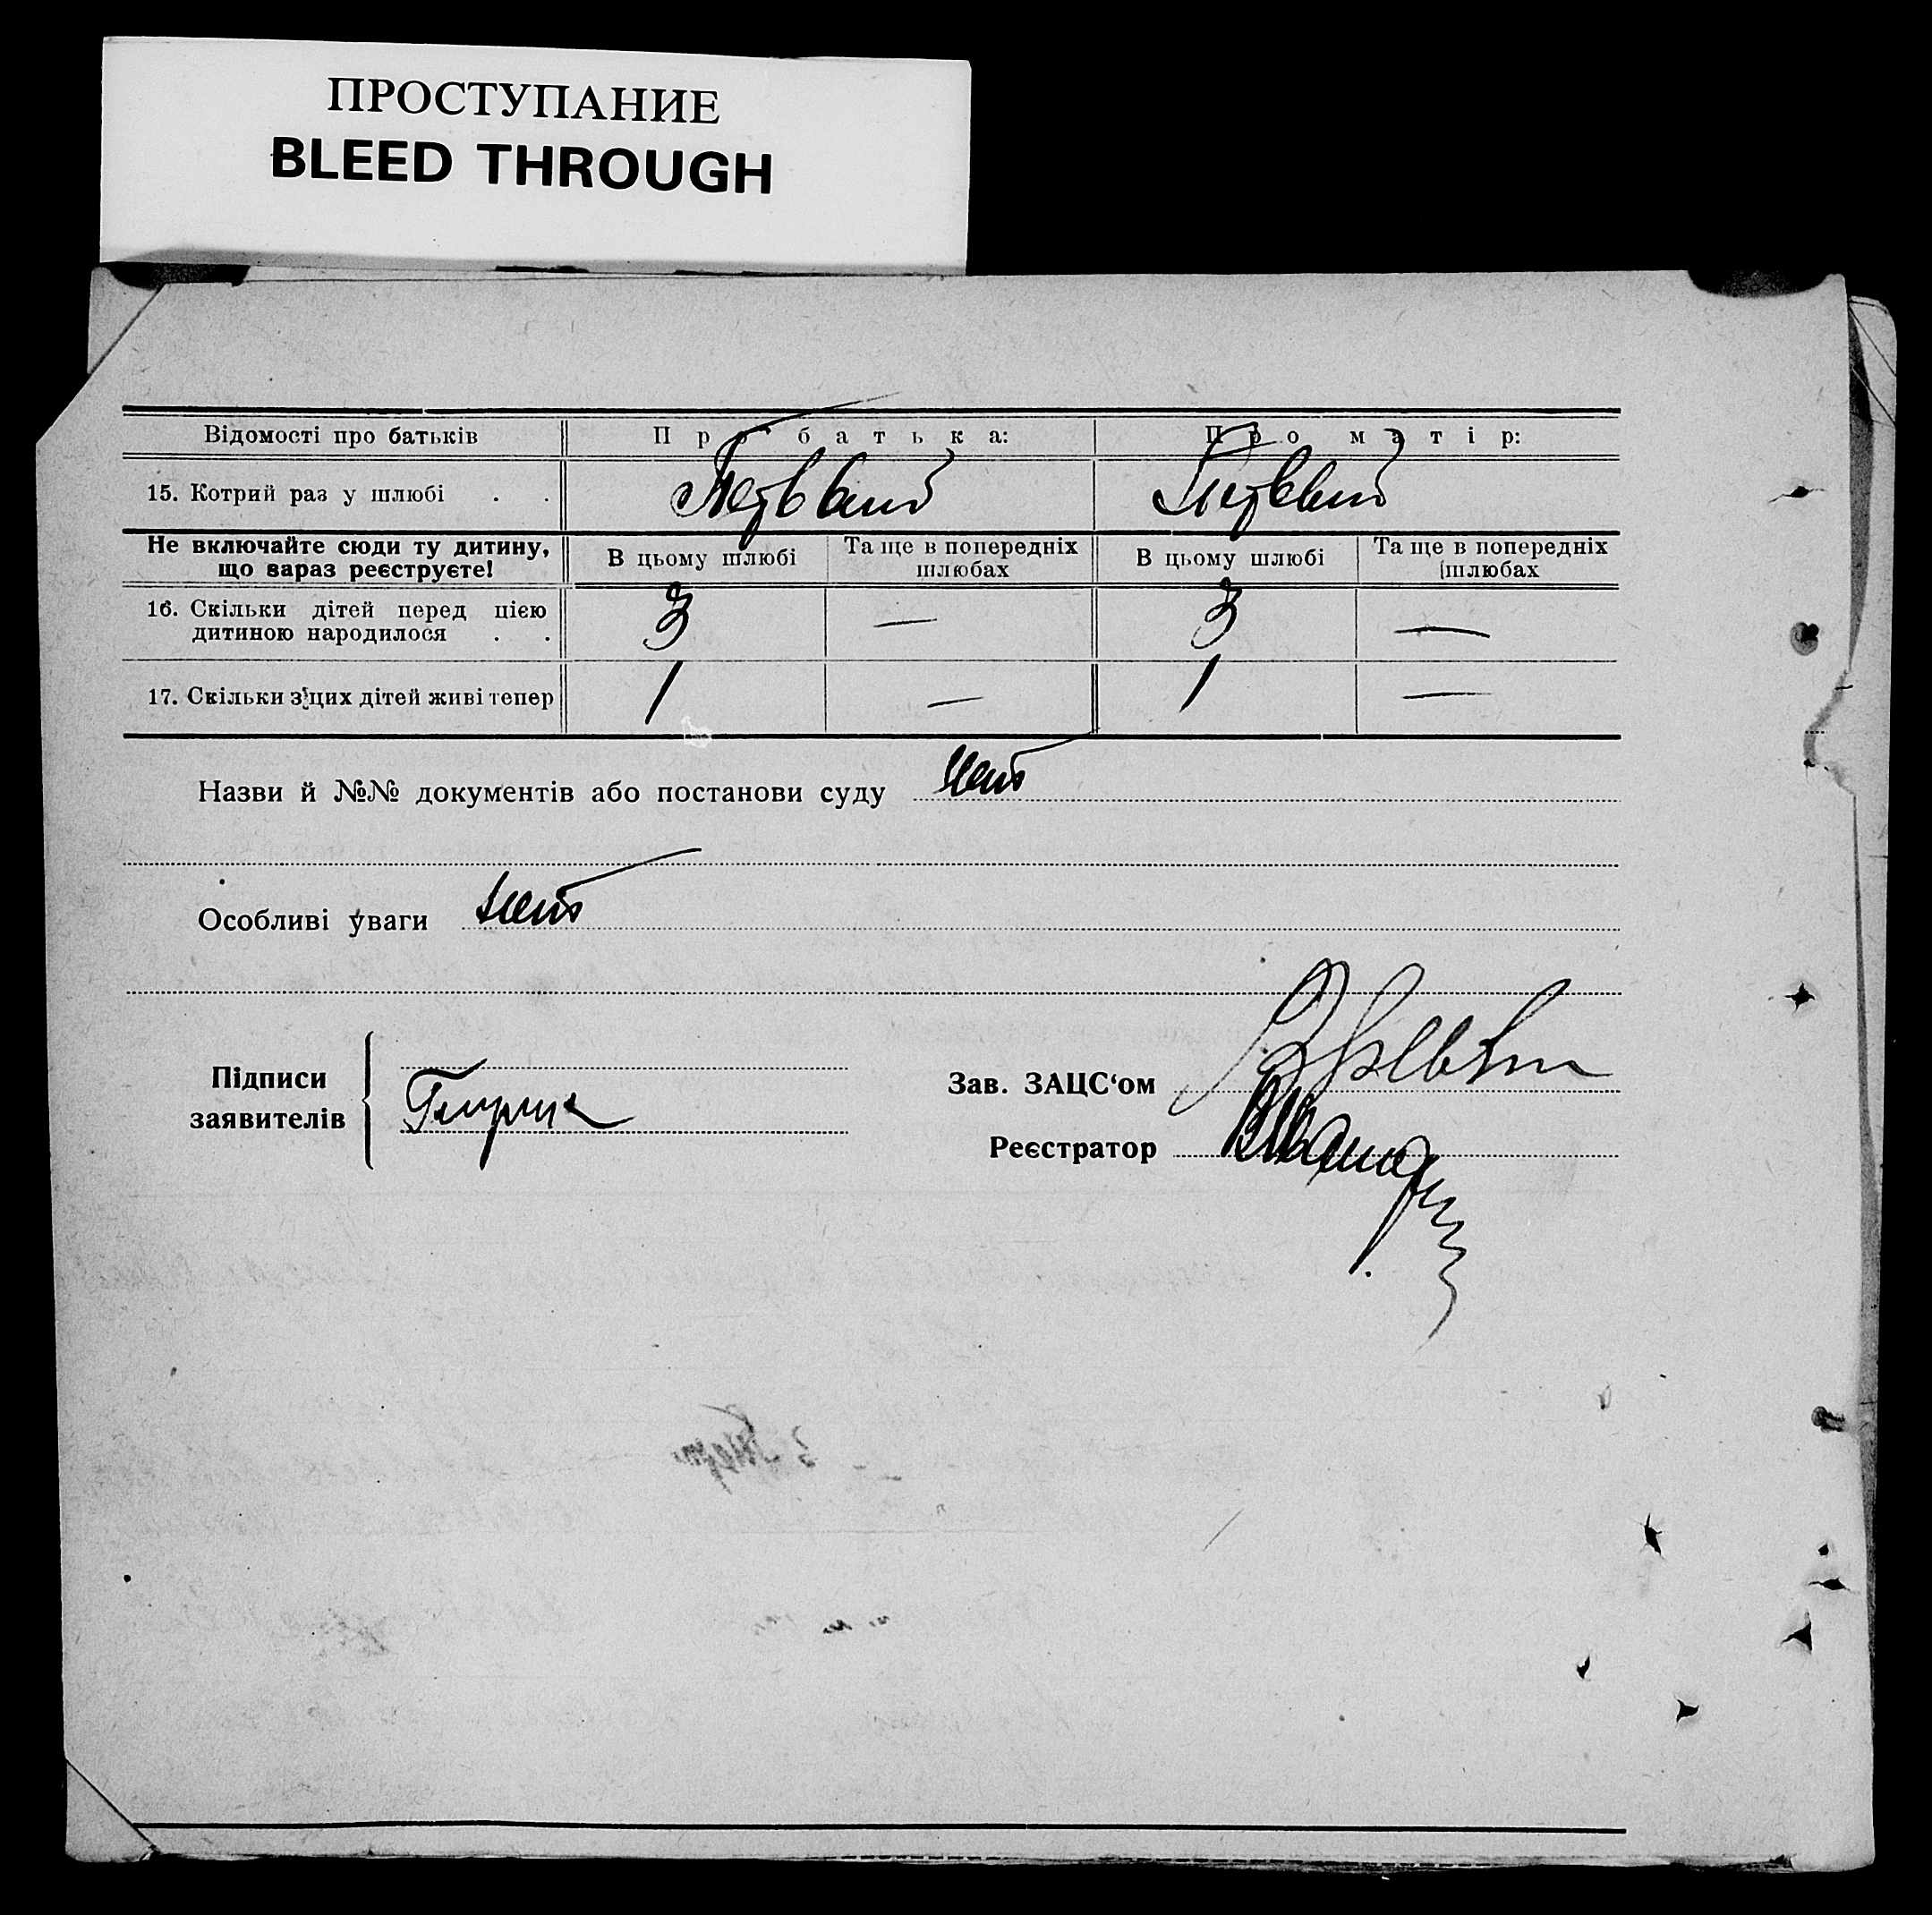 ПРОСТУПАНИЕ
BLEED THROUGH
Відомості про батьків Про батька: Про матір:
15. Котрий раз у шлюбі . . Первый Первый
Не включайте сюди ту дитину, що зараз реєструєте! В цьому шлюбі Та ще в попередніх шлюбах В цьому шлюбі Та ще в попередніх шлюбах
16. Скільки дітей перед цією дитиною народилося . . 3 — 3 —
17. Скільки з цих дітей живі тепер 1 — 1 —
Назви й №№ документів або постанови суду нет
Особливі уваги нет
Підписи заявителів
Зав. ЗАЦС‘ом
Реєстратор